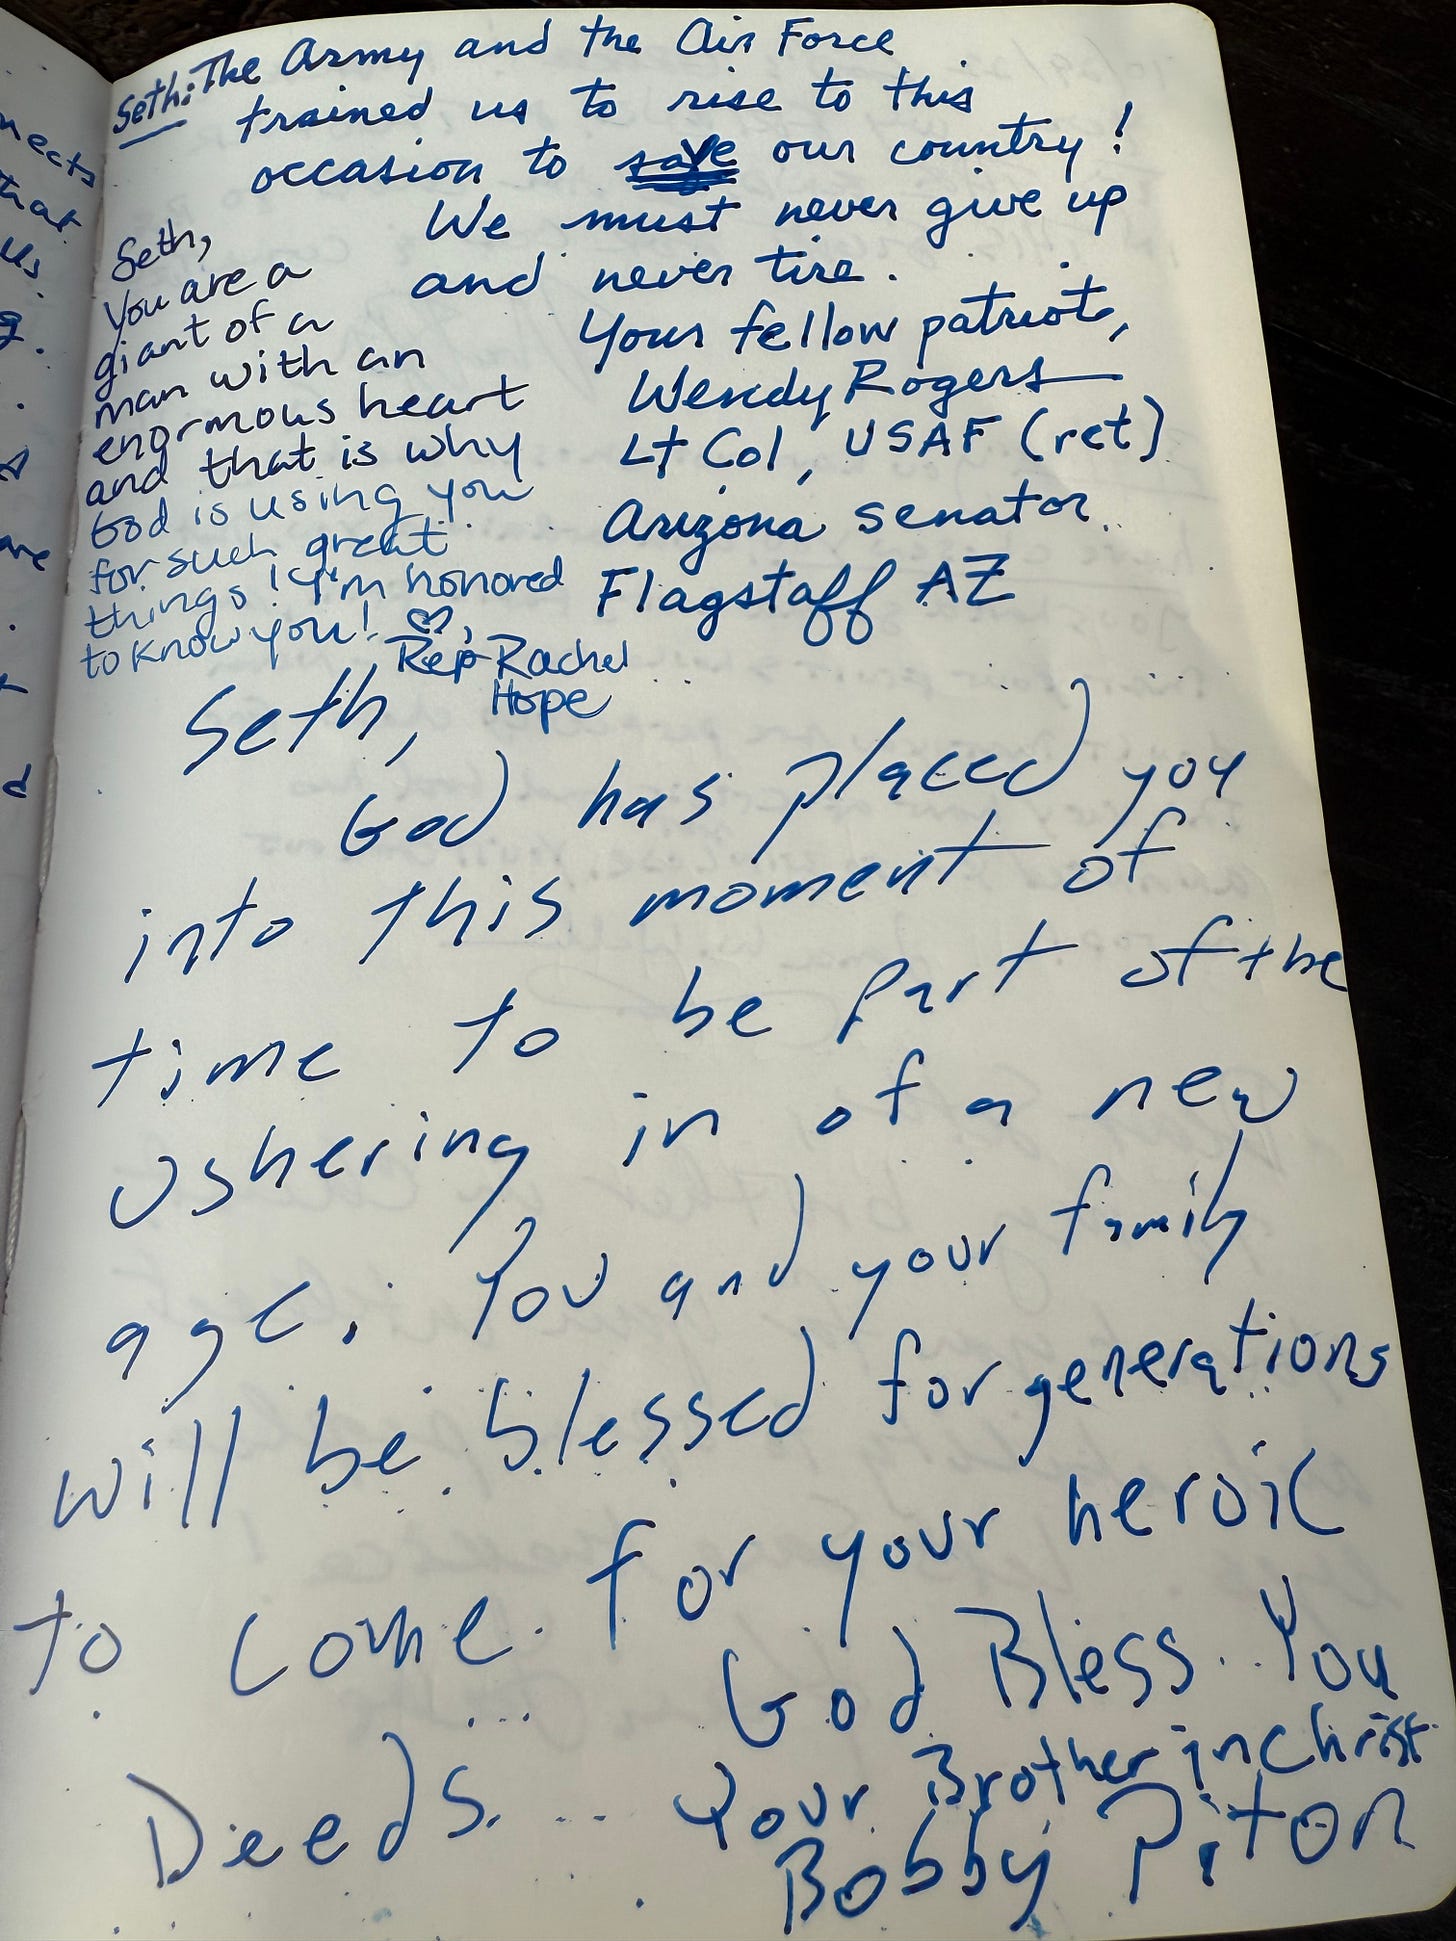 Seth: The Army and the Air Force
trained us to rise to this
occasion to save our country!
We must never give up
and never tire.
Your fellow patriot,
Wendy Rogers
Lt Col, USAF (ret)
Arizona senator
Flagstaff AZ
Seth,
You are a
giant of a
man with an
enormous heart
and that is why
God is using you
for such great
things! I'm honored
to know you! ♡,
Rep Rachel
Hope
Seth,
God has placed you
into this moment of
time to be part of the
ushering in of a new
age. You and your family
will be blessed for generations
to come for your heroic
Deeds... God Bless You
Your Brother in Christ
Bobby Piton
nects
that
us
g.
are
d